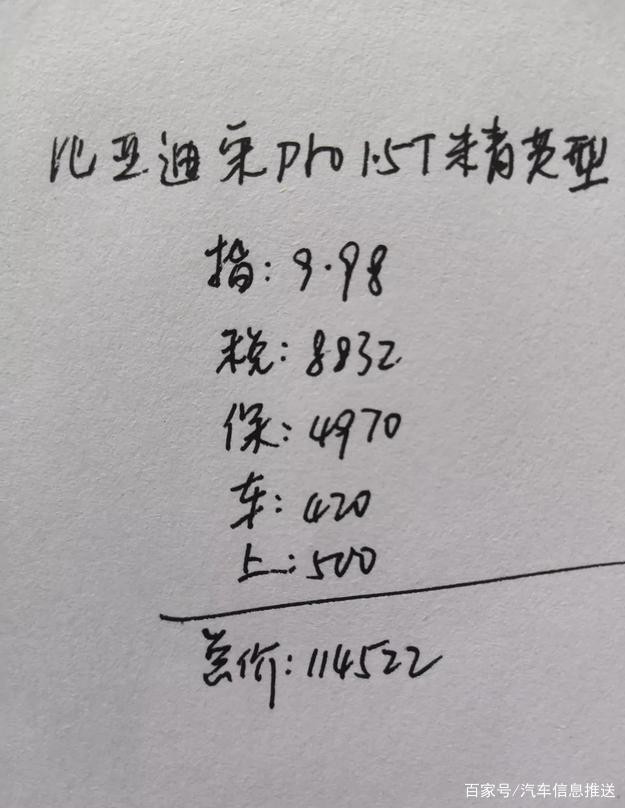 比亚迪宋Pro 1.5T精英型
指:9.98
税:8832
保:4970
车:420
上:500
总价:114522
百家号/汽车信息推送